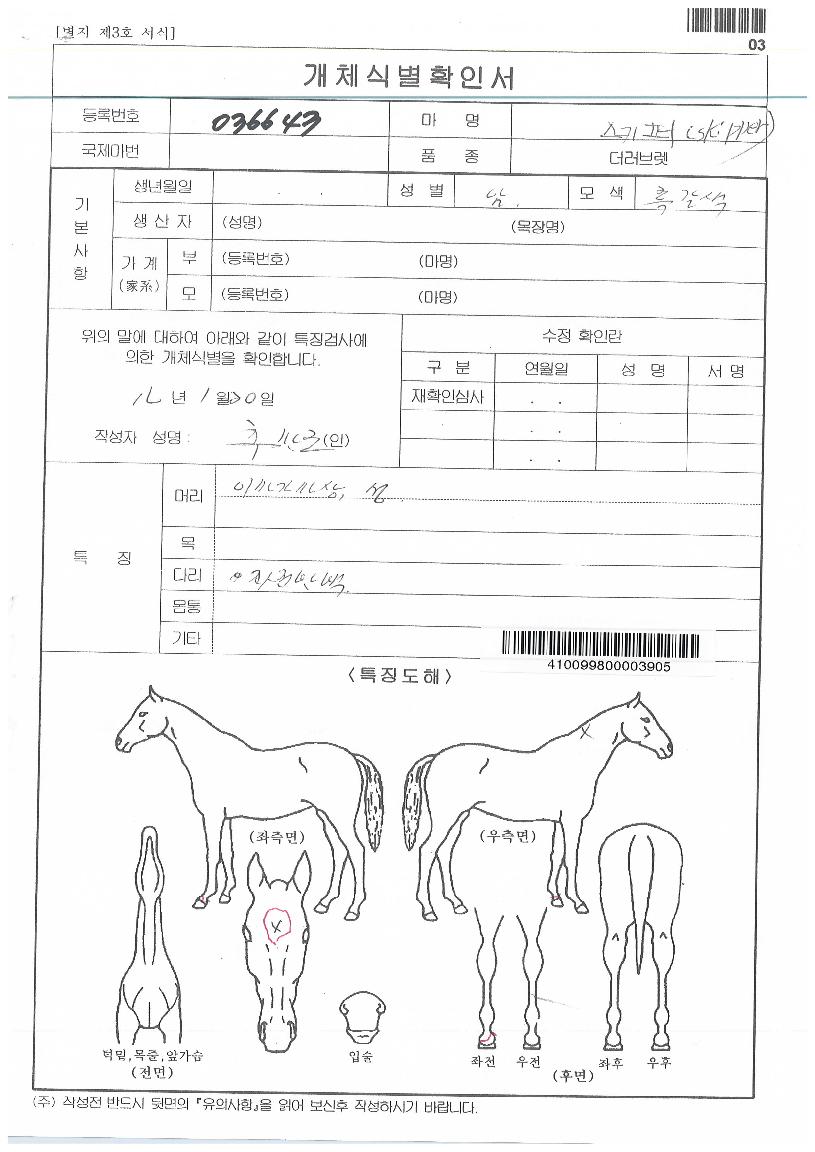 [별지 제3호 서식]
03
개체식별확인서
등록번호 036643 마 명 스키퍼 (skipper)
국제마번 품 종 더러브렛
기본사항
생년월일 . . 성 별 암. 모 색 흑갈색
생산자 (성명) (목장명)
가계 (家系) 부 (등록번호) (마명)
모 (등록번호) (마명)
위의 말에 대하여 아래와 같이 특징검사에
의한 개체식별을 확인합니다.
년 1월 30일
작성자 성명 : (인)
수정 확인란
구 분 연월일 성 명 서 명
재확인심사 . .
. .
. .
특 징
머리
목
다리
몸통
기타
410099800003905
<특징도해>
(좌측면) (우측면)
턱밑,목줄,앞가슴
(전면)
입술
좌전 우전
좌후 우후
(후면)
(주) 작성전 반드시 뒷면의 『유의사항』을 읽어 보신후 작성하시기 바랍니다.